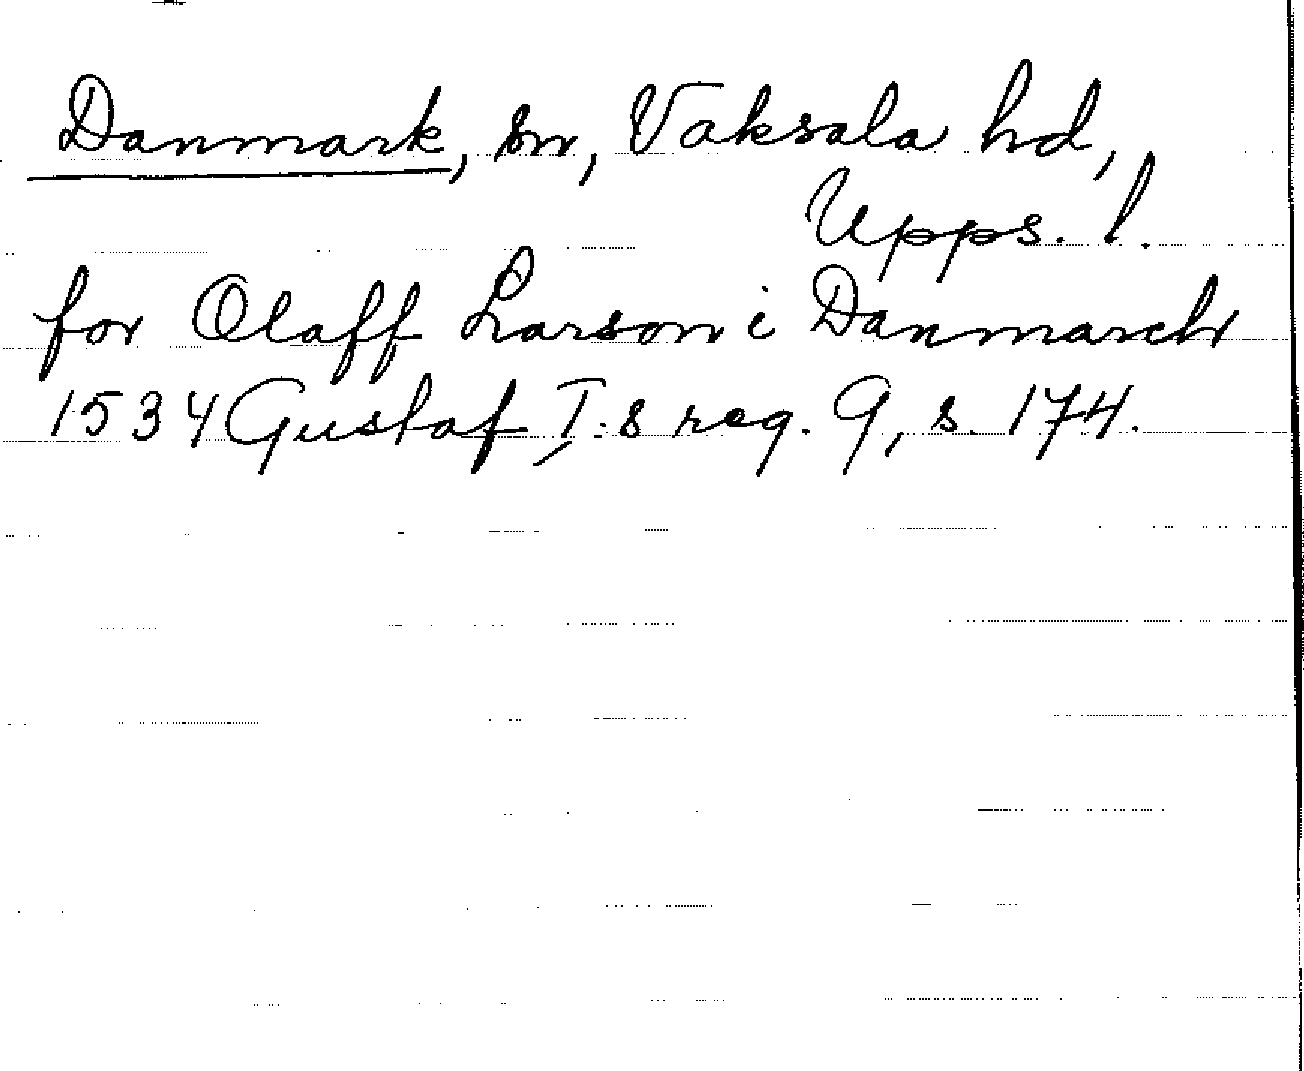 Danmark, sn, Vaksala hd,
Upps. l.
for Olaff Larson i Danmarch
1534 Gustaf I:s reg. 9, s. 174.